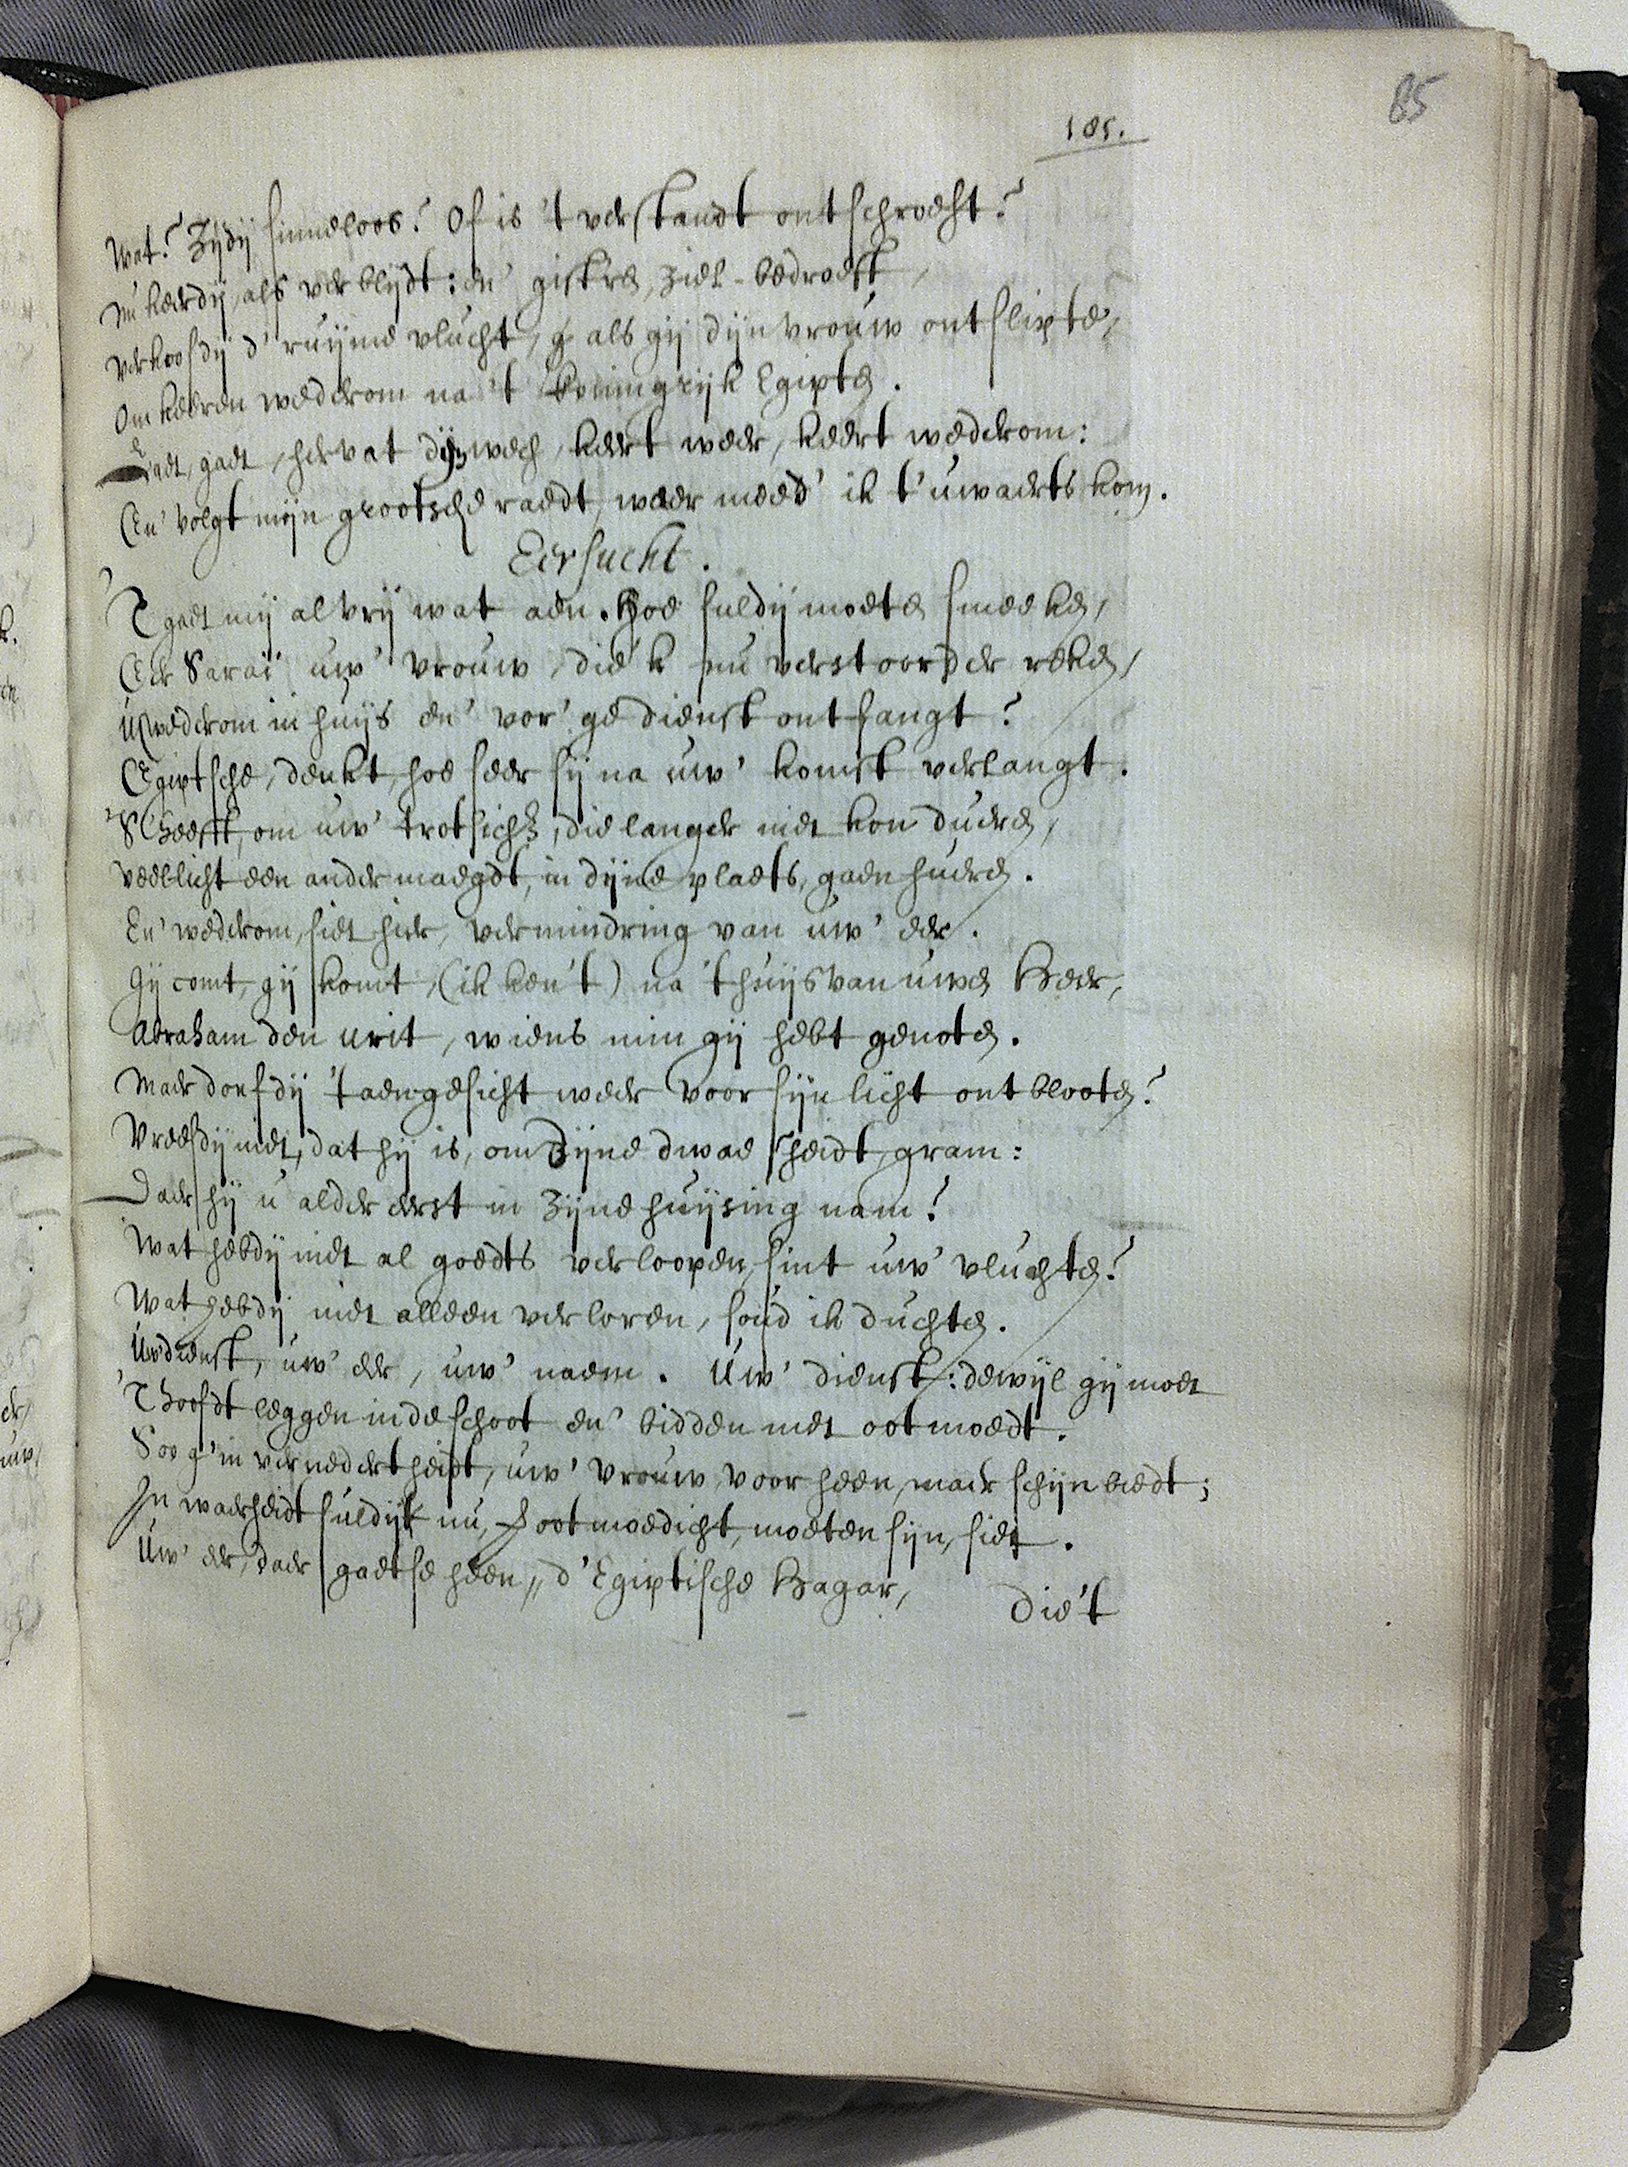 85
185.
Wat? Zijdij sinneloos? Of is 't verstandt ontschroeft?
Nu keerdij, als verblijdt: en' gistren, ziel-bedroeft,
Verkoosdij d' ruijme vlucht, als gij dijn vrouw ontslipte,
Om keeren wederom na 't koningrijk Egipten.
Gaet, gaet, hervat dijn wech, keert weer, keert wederom:
En' volgt mijn grootsche raedt, waer meed' ik t'uwaerts kom.
Eersucht.
'T gaet mij al vrij wat aen. Hoe suldij moeten smeeken,
Eer Sarai uw' vrouw, die 'k nu verstoorder reken,
U wederom in huijs en' vor'ge dienst ontfangt?
Egiptsche, denkt, hoe seer sij na uw' komst verlangt.
'S Heeft, om uw' trotsich, die langer niet kon dueren,
Veellicht een ander maegdt, in dijne plaets, gaen hueren.
En' wederom, siet hier, vermindring van uw' eer.
Gij comt, gij komt, (ik ken't) na 't huijs van uwen Heer,
Abraham den Urit, wiens min gij hebt genoten.
Maer dorfdij 't aengesicht weer voor sijn licht ontblooten?
Vreesdij niet, dat hij is, om dijne dwaesheidt, gram:
Daer hij u aldereerst in zijne huijsing nam?
Wat hebdij niet al goedts verloopen, sint uw' vluchten?
Wat hebdij niet alleen verloren, soud ik duchten.
Uw' dienst, uw' eer, uw' naem. Uw' dienst: dewijl gij moet
'T hoofdt leggen in de schoot en' bidden met ootmoedt.
Soo g'in vernedertheidt, uw' vrouw, voor heen, maer schijn biedt;
In waerheidt suldijt nu, ootmoedicht, moeten sijn, siet.
Uw' eer, daer gaetse heen, d'Egiptische Hagar,
Die't